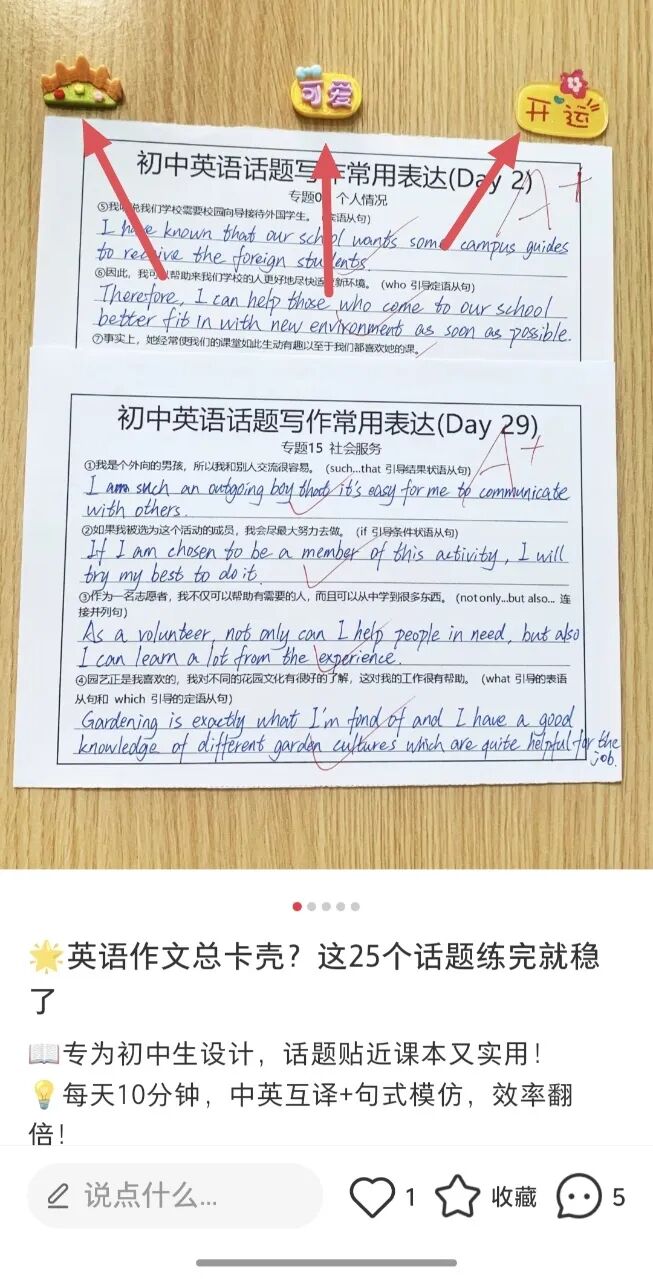 可爱
开运
初中英语话题写作常用表达(Day 2)
A+
个人情况
说我们学校需要校园向导接待外国学生。
I have known that our school wants some campus guides
to receive the foreign students.
⑥因此，我可以帮助来我们学校的人更好地尽快适应新环境。 (who 引导定语从句)
Therefore, I can help those who come to our school
better fit in with new environment as soon as possible.
⑦事实上，她经常使我们的课堂如此生动有趣以至于我们都喜欢她的课。
初中英语话题写作常用表达(Day 29)
A+
专题15 社会服务
①我是个外向的男孩，所以我和别人交流很容易。 (such...that 引导结果状语从句)
I am such an outgoing boy that it's easy for me to communicate
with others.
②如果我被选为这个活动的成员，我会尽最大努力去做。 (if 引导条件状语从句)
If I am chosen to be a member of this activity, I will
try my best to do it.
③作为一名志愿者，我不仅可以帮助有需要的人，而且可以从中学到很多东西。 (not only...but also... 连
接并列句)
As a volunteer, not only can I help people in need, but also
I can learn a lot from the experience.
④园艺正是我喜欢的，我对不同的花园文化有很好的了解，这对我的工作很有帮助。 (what 引导的表语
从句和 which 引导的定语从句)
Gardening is exactly what I'm fond of and I have a good
knowledge of different garden cultures which are quite helpful for the
job.
🌟英语作文总卡壳？这25个话题练完就稳
了
📖专为初中生设计，话题贴近课本又实用！
💡每天10分钟，中英互译+句式模仿，效率翻
倍！
说点什么...
1
收藏
5